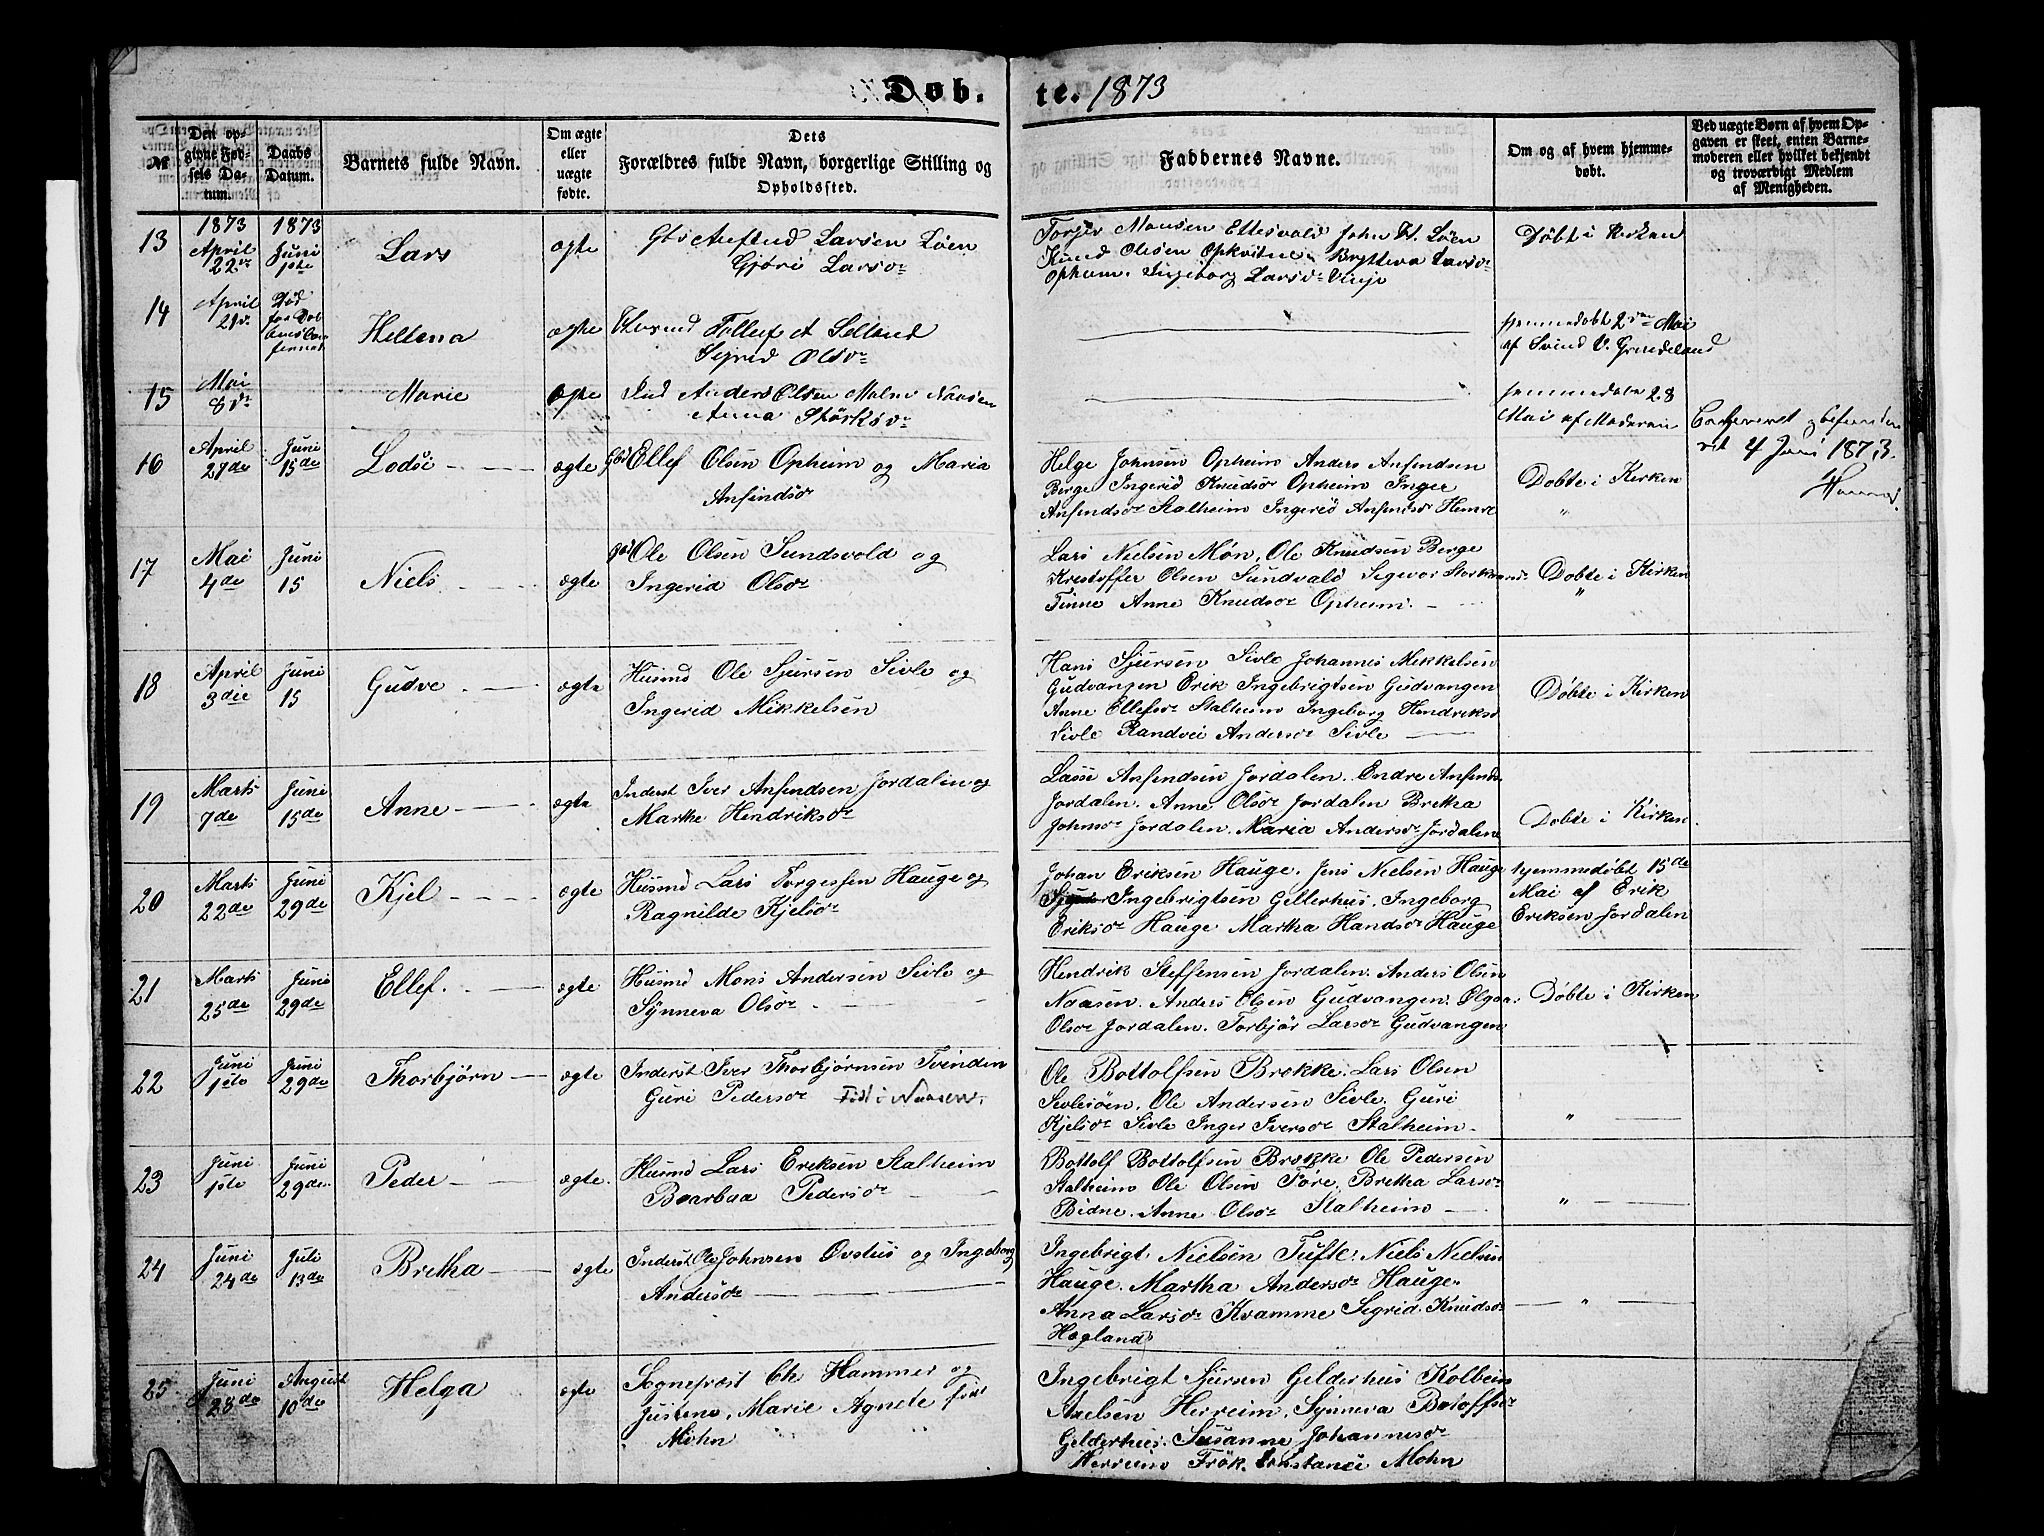 Døb.
te. 1873
№
Den op-
givne Fød-
sels Da-
tum.
Daabs
Datum.
Barnets fulde Navn.
Om ægte
eller
uægte
fødte.
Dets
Forældres fulde Navn, borgerlige Stilling og
Opholdssted.
Faddernes Navne.
Om og af hvem hjemme-
døbt.
Ved uægte Børn af hvem Op-
gaven er skeet, enten Barne-
moderen eller hvilket bekjendt
og troværdigt Medlem
af Menigheden.
13
1873
April
22de
1873
Juni
1ste
Lars
ægte
Larsen Løen
Gjøri Larsdr
Torger Monsen John Løen
Knud Olsen Opkvitne Brytteva Larsdr
Opheim. Ingeborg Larsdr Vinje
Døbt i Kirken
14
April
21de
Død
Hellena
ægte
Husmd Tollef Selland
Sigrid Olsdr
hjemmedøbt 2den Mai
af Svend V. Grindeland
15
Mai
8de
Marie
ægte
Anders Olsen Naasen
Anna Størksdr
hjemmedøbt 28
Mai af Moderen
4 Juni 1873.
Hammer
16
April
21de
Juni
15de
Lodsi
ægte
Gbd Ellef Olsen Opheim og Maria
Anfindsdr
Helge Johnsen Opheim Anders Anfindsen
Berge Ingerid Knudsdr Opheim Inger
Anfindsdr Stalheim Ingerid Anfindsdr
Døbte i Kirken
"
17
Mai
4de
Juni
15
Niels
ægte
Gbd Ole Olsen Sundsvold og
Ingerid Olsdr
Lars Nielsen Møn, Ole Knudsen Berge
Kristoffer Olsen Sundvald
Tinne Anne Knudsdr Opheim.
Døbte i Kirken
"
18
April
3die
Juni
15
Gudve
ægte
Husmd Ole Sjursen Sivle og
Ingerid Mikkelsen
Hans Sjursen Sivle Johannes Mikkelsen
Gudvangen Erik Ingebrigtsen Gudvangen
Anne Ellefsdr Stalheim Ingeborg Hendriksdr
Sivle Randvei Andersdr Sivle
Døbte i Kirken
19
Marts
7de
Juni
15de
Anne
ægte
Inderst Iver Anfindsen Jordalen og
Marthe Hendriksdr
Lasse Anfindsen Jordalen. Endre Anfinds
Jordalen. Anne Olsdr Jordalen Bretha
Johnsdr Jordalen. Maria Andersdr Jordalen
Døbte i Kirken.
20
Marts
22de
Juni
29de
Kjel
ægte
Husmd Lars Torgersen Hauge og
Ragnilde Kjelsdr
Johan Eriksen Hauge. Jens Nielsen Hauge
Ingebrigtsen Gilderhus. Ingeborg
Eriksdr Hauge. Martha Handsdr Hauge
hjemmedøbt 15de
Mai af Erik
Eriksen Jordalen
21
Marts
25de
Juni
29de
Ellef.
ægte
Husmd Mons Andersen Sivle og
Synneva Olsdr
Hendrik Steffensen Jordalen. Anders Olsen
Naasen. Anders Olsen Gudvangen. Olgaa
Olsdr Jordalen. Torbjør Larsdr Gudvangen
Døbte i Kirken
22
Juni
1ste
Juni
29de
Thorbjørn
ægte
Inderst Iver Thorbjørnsen Tvinden
Guri Pedersdr Født i Naasen.
Ole Bottolfsen Brekke. Lars Olsen
Sivlesøen. Ole Andersen Sivle. Guri
Kjelsdr Sivle Inger Iversdr Stalheim
"
23
Juni
1ste
Juni
29de
Peder
ægte.
Husmd Lars Eriksen Stalheim
Baarbua Pedersdr
Bottolf Bottolfsen Brekke Ole Pedersen
Stalheim Ole OlsenFøre. Bretha Larsdr
Bidne. Anne Olsdr Stalheim
"
24
Juni
24de
Juli
13de
Bretha
ægte
Inderst Ole Johnsen Øvstus og Ingeborg
Andersdr
Ingebrigt Nielsen Tufte. Niels Nielsen
Hauge. Martha Andersdr Hauge.
Anna Larsdr Kvamme Sigrid Knudsdr
Høgland
"
25
Juni
28de
August
10de
Helga
ægte
Sognepræst Ch Hammer og
Justene, Marie Agnete født
Mohn
Ingebrigt Sjursen Gelderhus Kolbein
Axelsen Herreim. Synneva Botolfsdr
Gelderhus. Susanne Johannesdr
Herreim Frøk. Constance Mohn